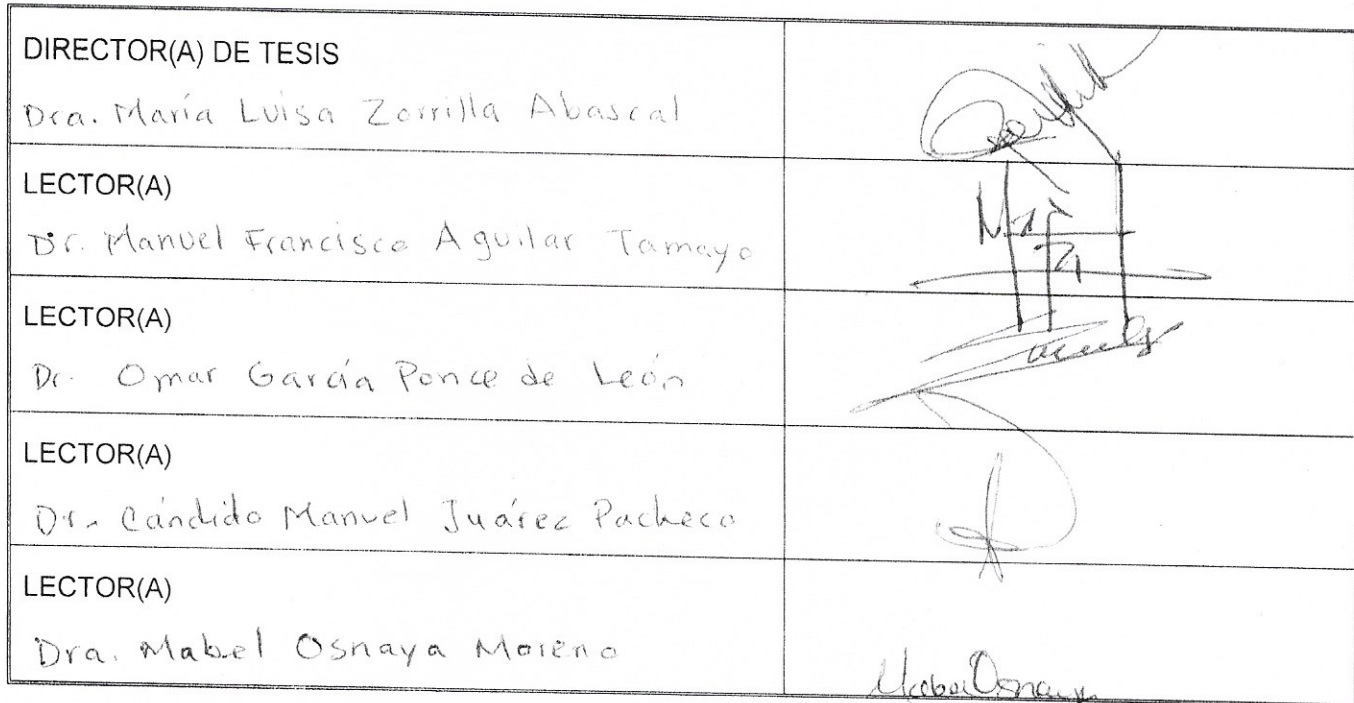 DIRECTOR(A) DE TESIS
Dra. María Luisa Zorrilla Abascal
LECTOR(A)
Dr. Manuel Francisco Aguilar Tamayo
LECTOR(A)
Dr. Omar García Ponce de León
LECTOR(A)
Dr. Cándido Manuel Juárez Pacheco
LECTOR(A)
Dra. Mabel Osnaya Moreno
Mabel Osnaya